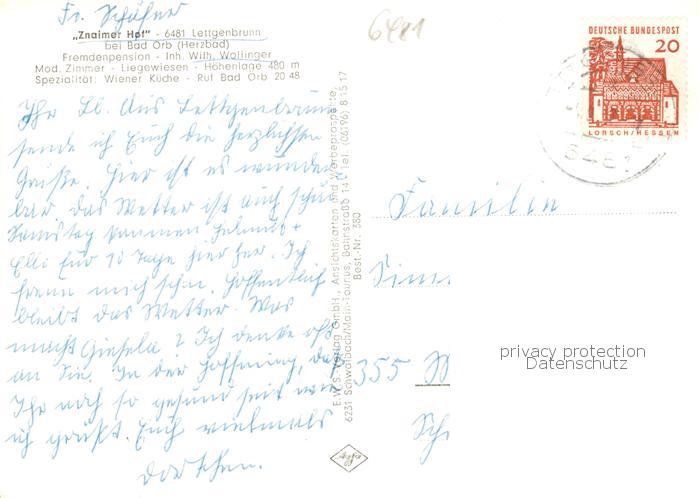 Fr. Schüßner
„Znaimer Hof" - 6481 Lettgenbrunn
bei Bad Orb (Herzbad)
Fremdenpension - Inh. Wilh. Wollinger
Mod. Zimmer - Liegewiesen - Höhenlage 480 m
Spezialität: Wiener Küche - Ruf Bad Orb 20 48
6481
DEUTSCHE BUNDESPOST
20
LORSCH/HESSEN
Ihr Lb. Aus Lettgenbrunn
sende ich Euch die herzlichsten
Grüße. Hier ist es wunder
bar das Wetter ist auch schön
Samstag kommen Helmut +
Elli für 10 Tage hier her. Ich
freue mich schon. Hoffentlich
bleibt das Wetter. Was
macht Giesela? Ich denke oft
an Sie. In der Hoffnung, daß
Ihr noch so gesund seit wie
ich grüßt Euch vielmals
Dorchen.
E.W.S.-Verlag GmbH., Ansichtskarten und Werbeprospekte,
6231 Schwalbach/Main-Taunus, Bahnstraße 14 - Tel. (06196) 8 15 17
Best.-Nr. 380
Agfa
Familie
355 M
privacy protection
Datenschutz